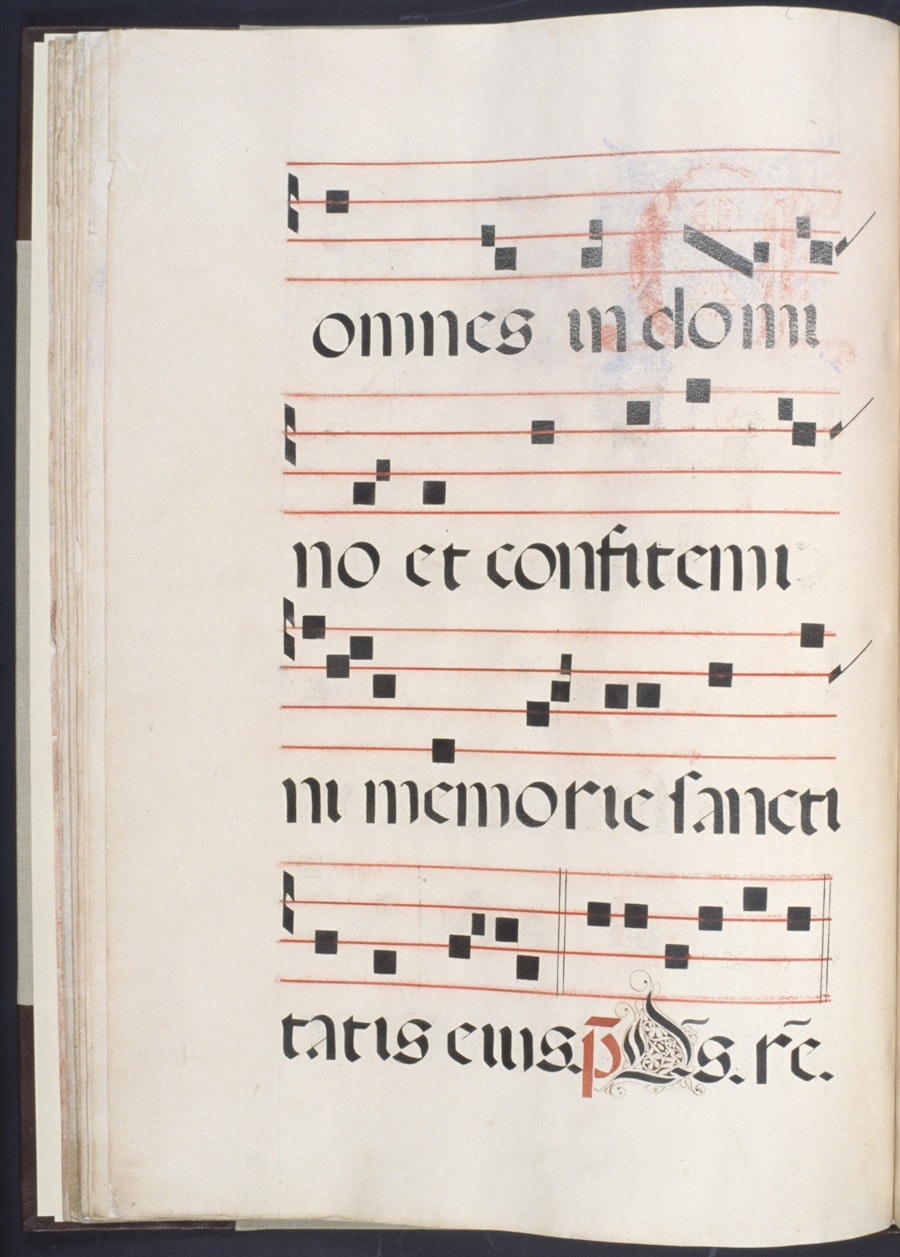 omnes in domi
no et confitemi
ni memorie sancti
tatis eius. p̄ Dn̄s. rē.